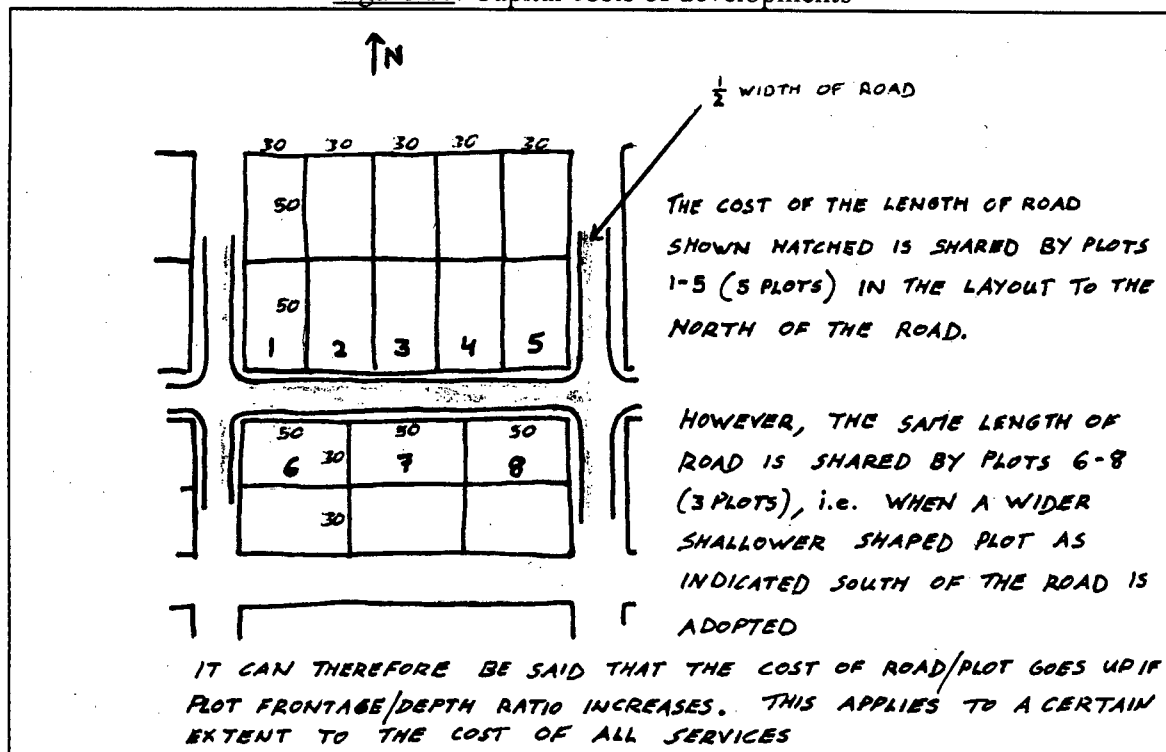 Capital costs of developments
N
1/2 WIDTH OF ROAD
30 30 30 30 30
50
THE COST OF THE LENGTH OF ROAD
SHOWN HATCHED IS SHARED BY PLOTS
1-5 (5 PLOTS) IN THE LAYOUT TO THE
NORTH OF THE ROAD.
50
1 2 3 4 5
HOWEVER, THE SAME LENGTH OF
ROAD IS SHARED BY PLOTS 6-8
(3 PLOTS), i.e. WHEN A WIDER
SHALLOWER SHAPED PLOT AS
INDICATED SOUTH OF THE ROAD IS
ADOPTED
50 50 50
6 30 7 8
30
IT CAN THEREFORE BE SAID THAT THE COST OF ROAD/PLOT GOES UP IF
PLOT FRONTAGE/DEPTH RATIO INCREASES. THIS APPLIES TO A CERTAIN
EXTENT TO THE COST OF ALL SERVICES